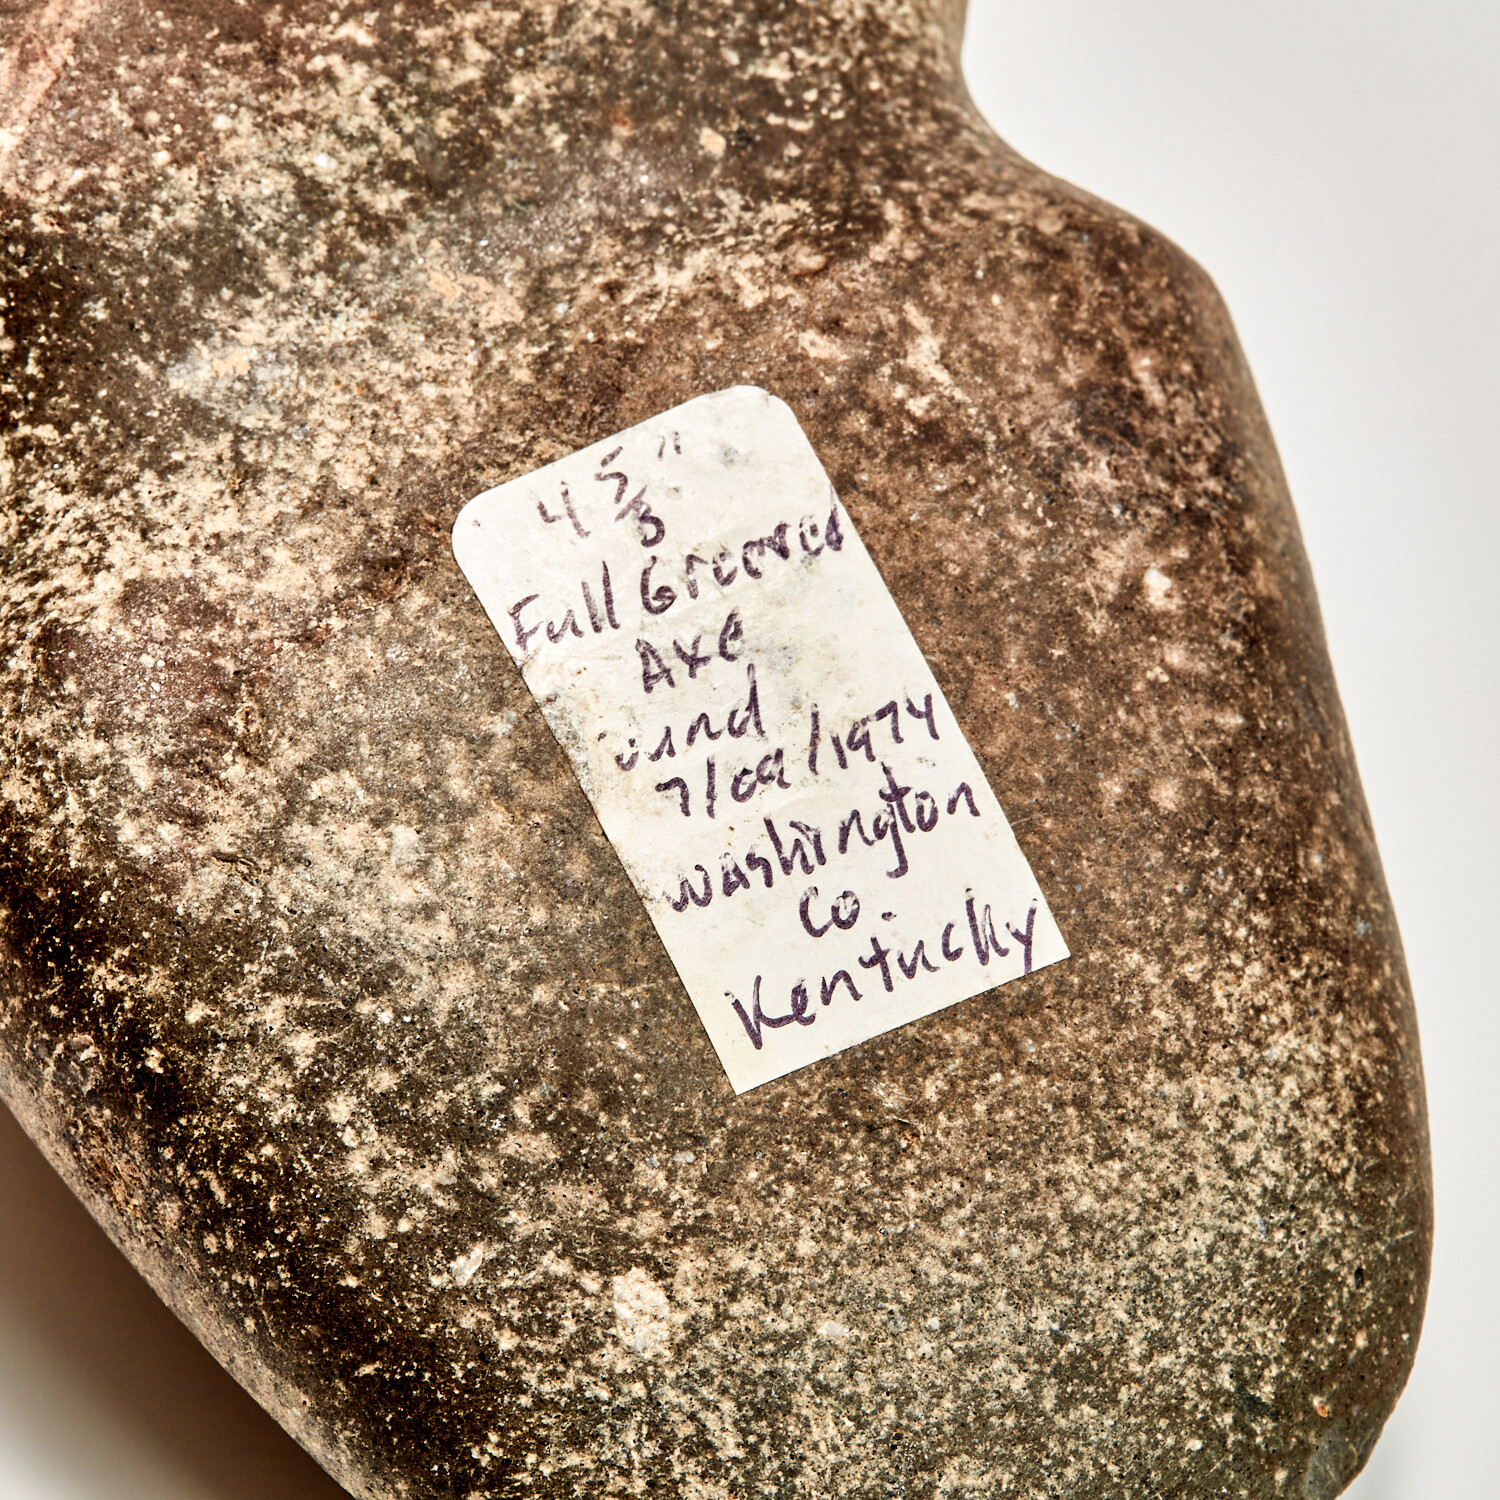 4 5/8"
Full Grooved
Axe
ound
7/09/1974
Washington
Co.
Kentucky